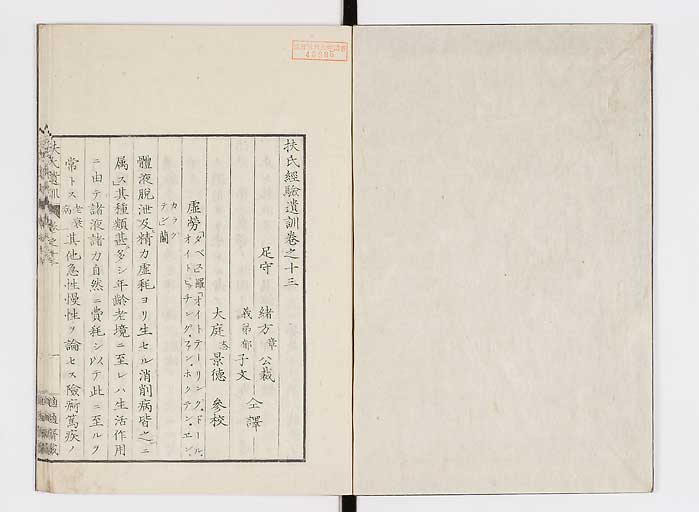 扶氏經驗遺訓卷之十三
足守 緒方章公裁
義弟郁子文 仝譯
大庭 景德 參校
虛勞「タベス」羅「オイトテーリング・ドール・
オイトピッチング・ファン・ホクテン・エン・
カラグテン」蘭
體液脫泄及精力虛耗ヨリ生セル消削病皆之ニ
屬ス其種類甚多シ年齡老境ニ至レハ生活作用
ニ由テ諸液諸力自然ニ費耗シ以テ此ニ至ルヲ
常トス老衰病其他急性慢性ヲ論セス險痾篤疾ノ
扶氏遺訓
40986